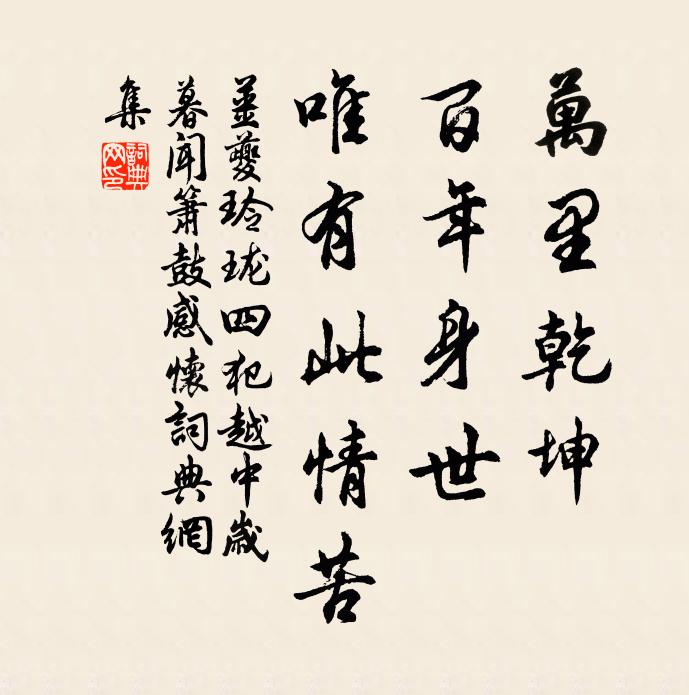 萬里乾坤
百年身世
唯有此情苦
姜夔玲珑四犯越中歲
暮聞簫鼓感懷詞典網
集
詞典
网印